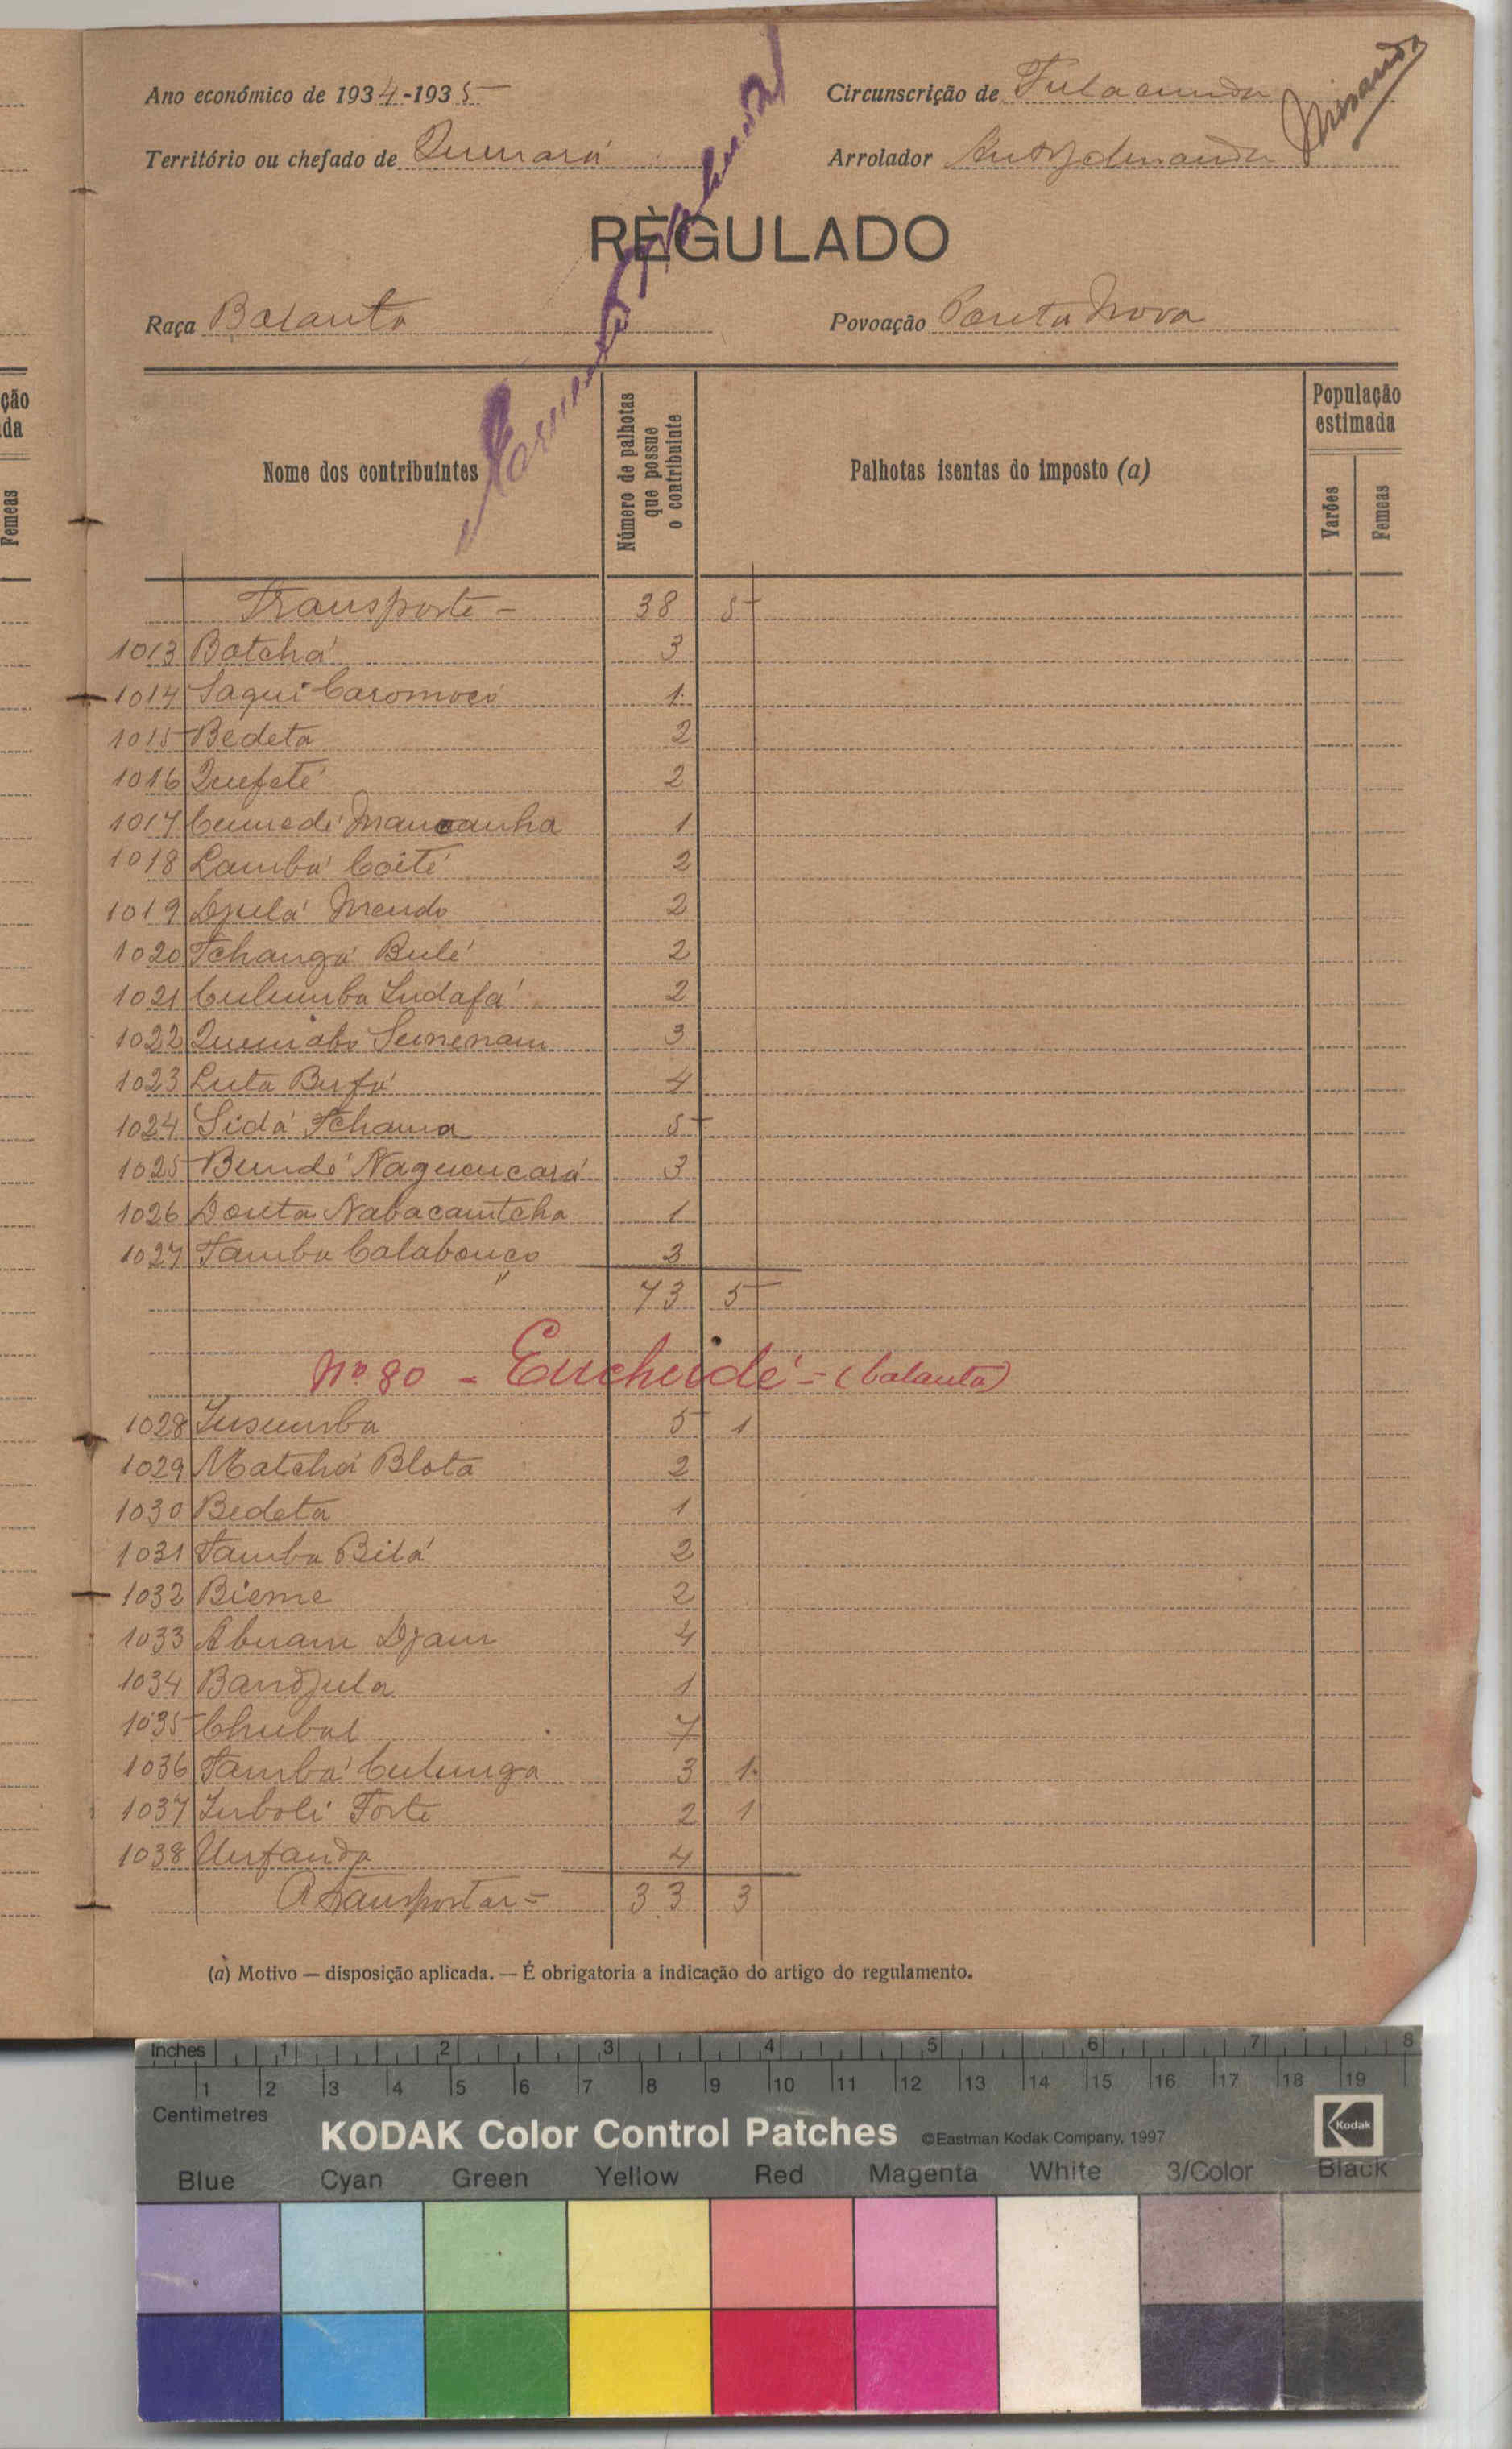 ção
da
Femeas
Ano económico de 1934-1935
Circunscrição de Fulacunda
Território ou chefado de Quinará
Arrolador
RÈGULADO
Raça Balanta
Povoação Ponta Nova
Nome dos contribuintes
Número de palhotas que possue o contribuinte
Palhotas isentas do imposto (a)
População estimada
Varões
Femeas
Transporte - 38 5
1013 Botchá 3
1014 Saqui 1
1015 Bedeta 2
1016 Quefeté 2
1017 Mancanha 1
1018 Lambá Coité 2
1019 Djulá Mendo 2
1020 Tchangá Bulé 2
1021 Culumba Indafá 2
1022 3
1023 Luta Bufá 4
1024 Sidá Tchama 5
1025 Bundé 3
1026 1
1027 Tamba Calabouço 3
" 73 5
Nº 80 - Encheidé - (balanta)
1028 Insumba 5 1
1029 Matchá Blota 2
1030 Bedeta 1
1031 Tamba Bilá 2
1032 Bieme 2
1033 Abnam Djam 4
1034 Bandjula 1
1035 Chubal 7
1036 Tambá Culunga 3 1
1037 Inboli Forte 2 1
1038 Unfanda 4
A transportar = 33 3
(a) Motivo — disposição aplicada. — É obrigatoria a indicação do artigo do regulamento.
Inches 1 2 3 4 5 6 7 8
1 2 3 4 5 6 7 8 9 10 11 12 13 14 15 16 17 18 19
Centimetres
KODAK Color Control Patches ©Eastman Kodak Company, 1997 Kodak
Blue Cyan Green Yellow Red Magenta White 3/Color Black